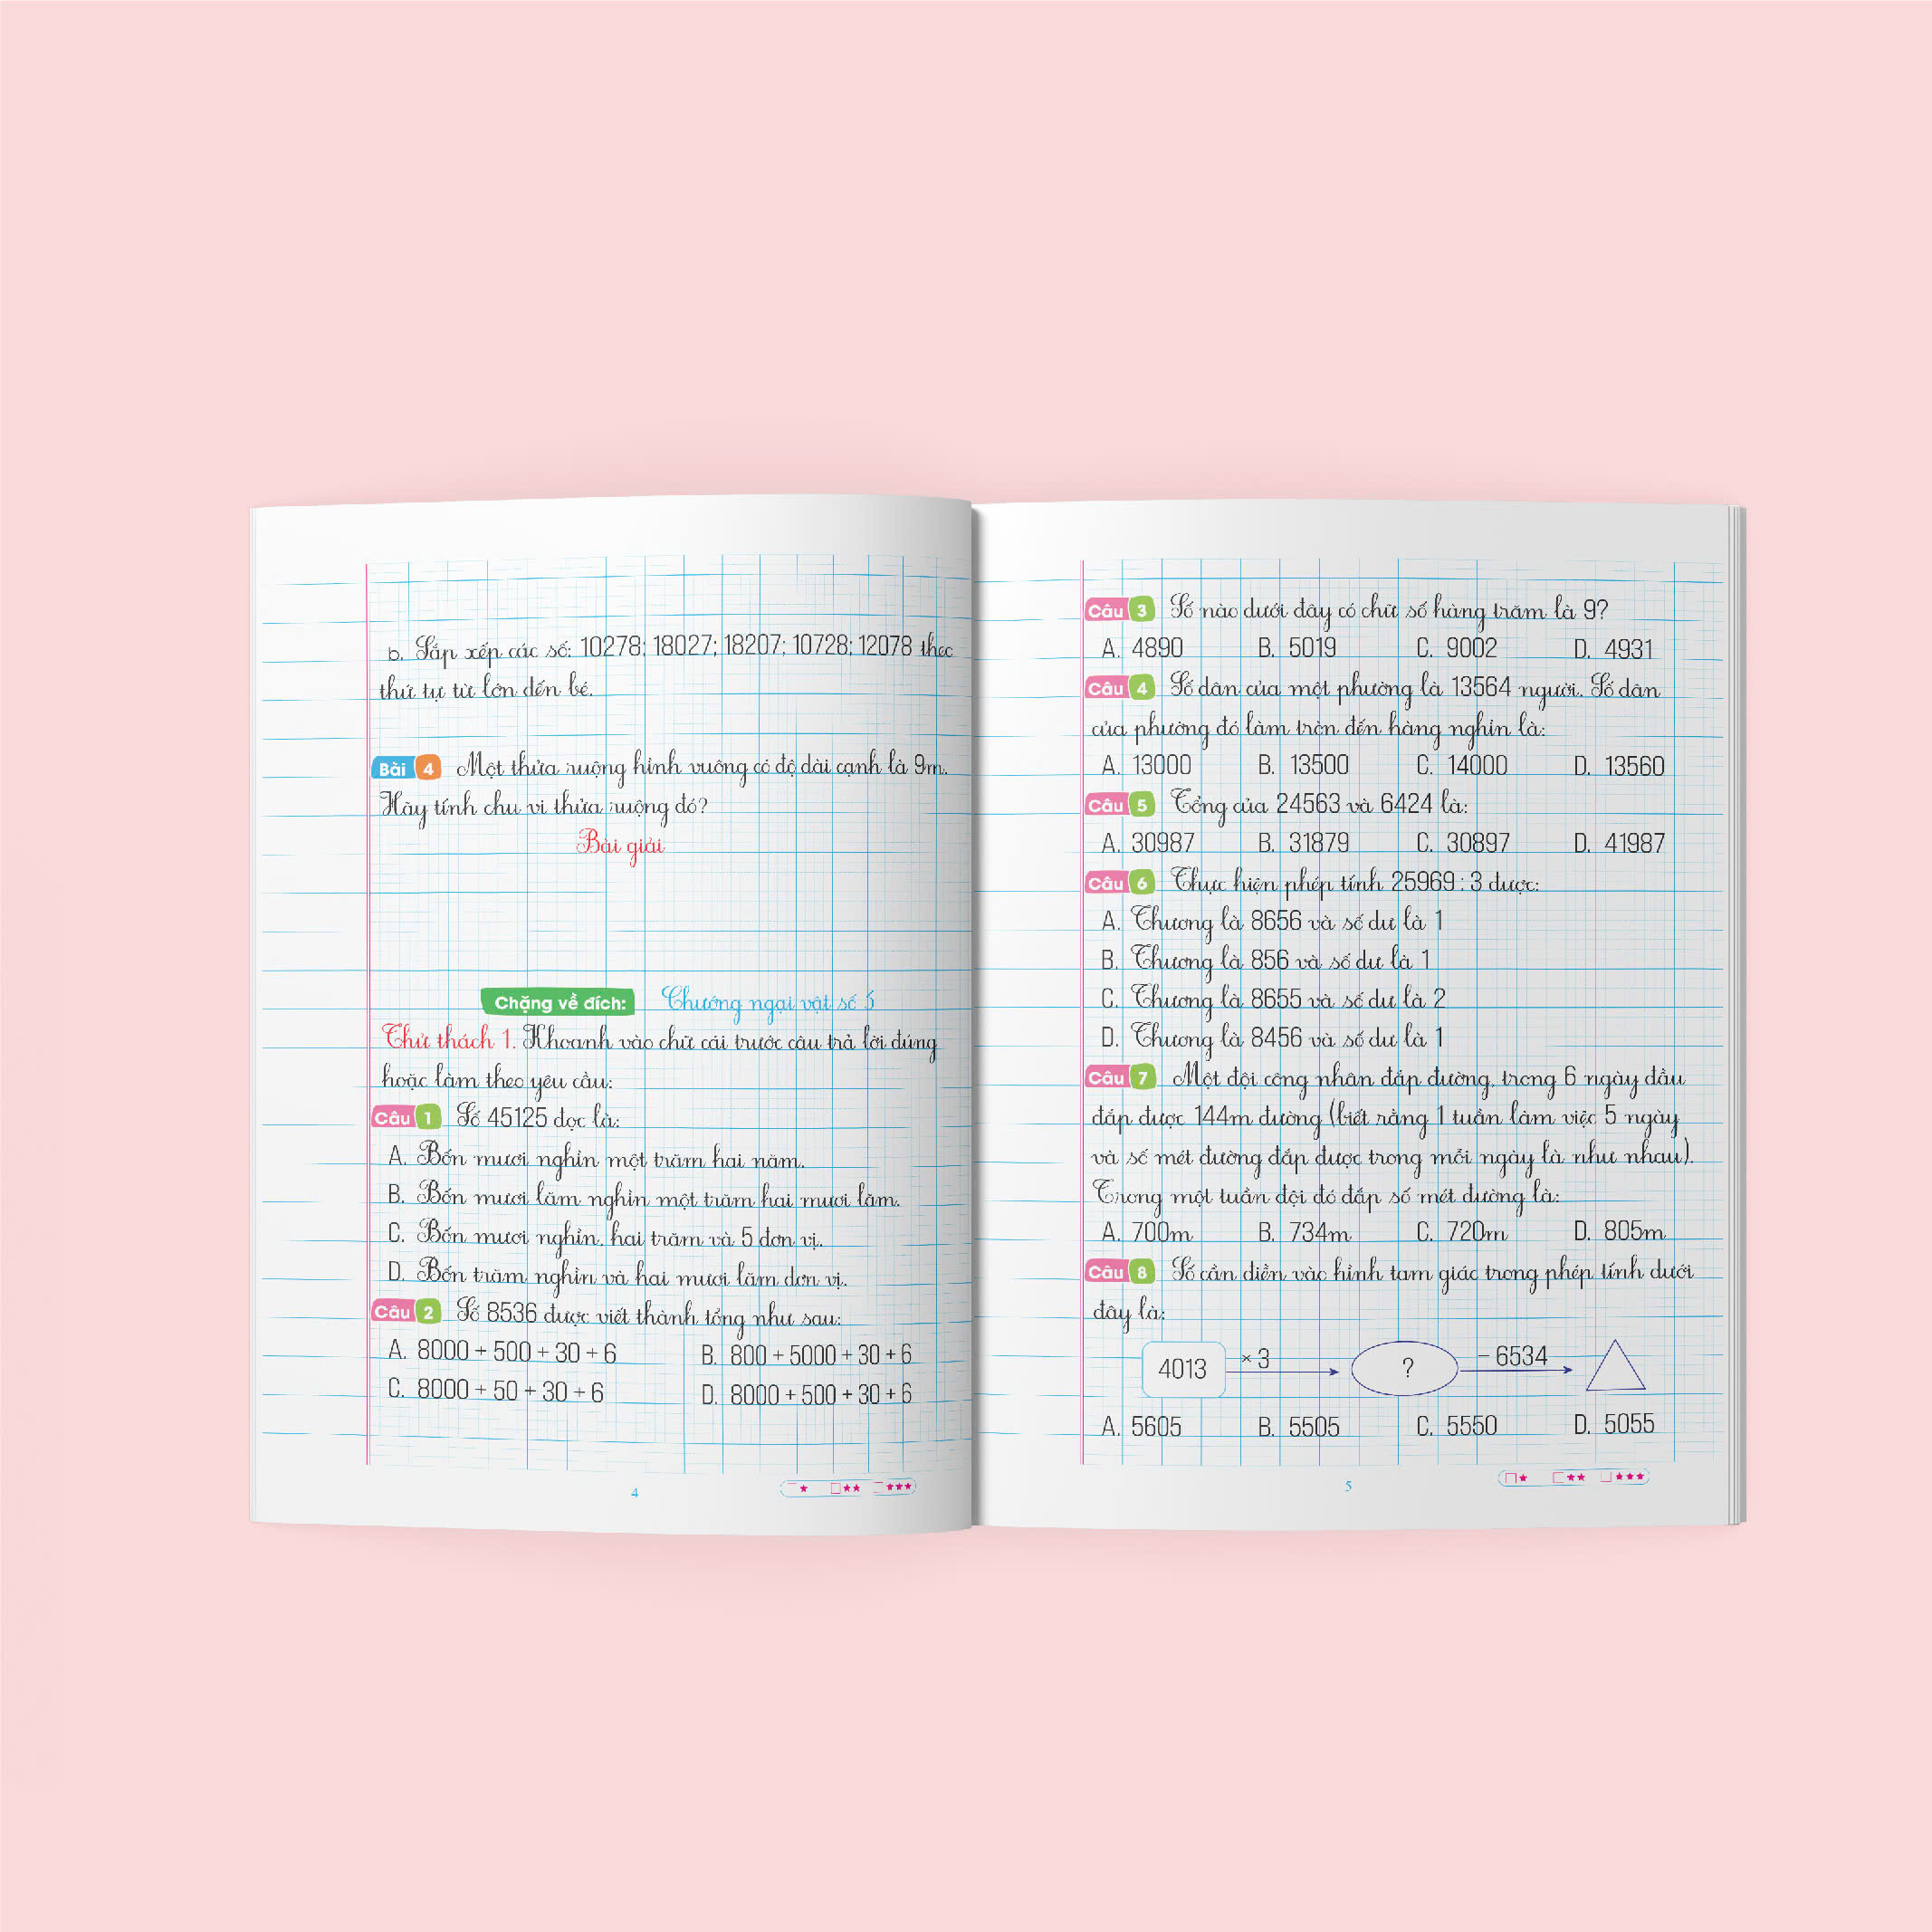 b. Sắp xếp các số: 10278; 18027; 18207; 10728; 12078 theo
thứ tự từ lớn đến bé.
Bài 4 Một thửa ruộng hình vuông có độ dài cạnh là 9m.
Hãy tính chu vi thửa ruộng đó?
Bài giải
Chặng về đích: Chướng ngại vật số 5
Thử thách 1. Khoanh vào chữ cái trước câu trả lời đúng
hoặc làm theo yêu cầu:
Câu 1 Số 45125 đọc là:
A. Bốn mươi nghìn một trăm hai năm.
B. Bốn mươi lăm nghìn một trăm hai mươi lăm.
C. Bốn mươi nghìn, hai trăm và 5 đơn vị.
D. Bốn trăm nghìn và hai mươi lăm đơn vị.
Câu 2 Số 8536 được viết thành tổng như sau:
A. 8000 + 500 + 30 + 6 B. 800 + 5000 + 30 + 6
C. 8000 + 50 + 30 + 6 D. 8000 + 500 + 30 + 6
4
Câu 3 Số nào dưới đây có chữ số hàng trăm là 9?
A. 4890 B. 5019 C. 9002 D. 4931
Câu 4 Số dân của một phường là 13564 người. Số dân
của phường đó làm tròn đến hàng nghìn là:
A. 13000 B. 13500 C. 14000 D. 13560
Câu 5 Tổng của 24563 và 6424 là:
A. 30987 B. 31879 C. 30897 D. 41987
Câu 6 Thực hiện phép tính 25969 : 3 được:
A. Thương là 8656 và số dư là 1
B. Thương là 856 và số dư là 1
C. Thương là 8655 và số dư là 2
D. Thương là 8456 và số dư là 1
Câu 7 Một đội công nhân đắp đường, trong 6 ngày đầu
đắp được 144m đường (biết rằng 1 tuần làm việc 5 ngày
và số mét đường đắp được trong mỗi ngày là như nhau).
Trong một tuần đội đó đắp số mét đường là:
A. 700m B. 734m C. 720m D. 805m
Câu 8 Số cần điền vào hình tam giác trong phép tính dưới
đây là:
4013 × 3 ? - 6534
A. 5605 B. 5505 C. 5550 D. 5055
5